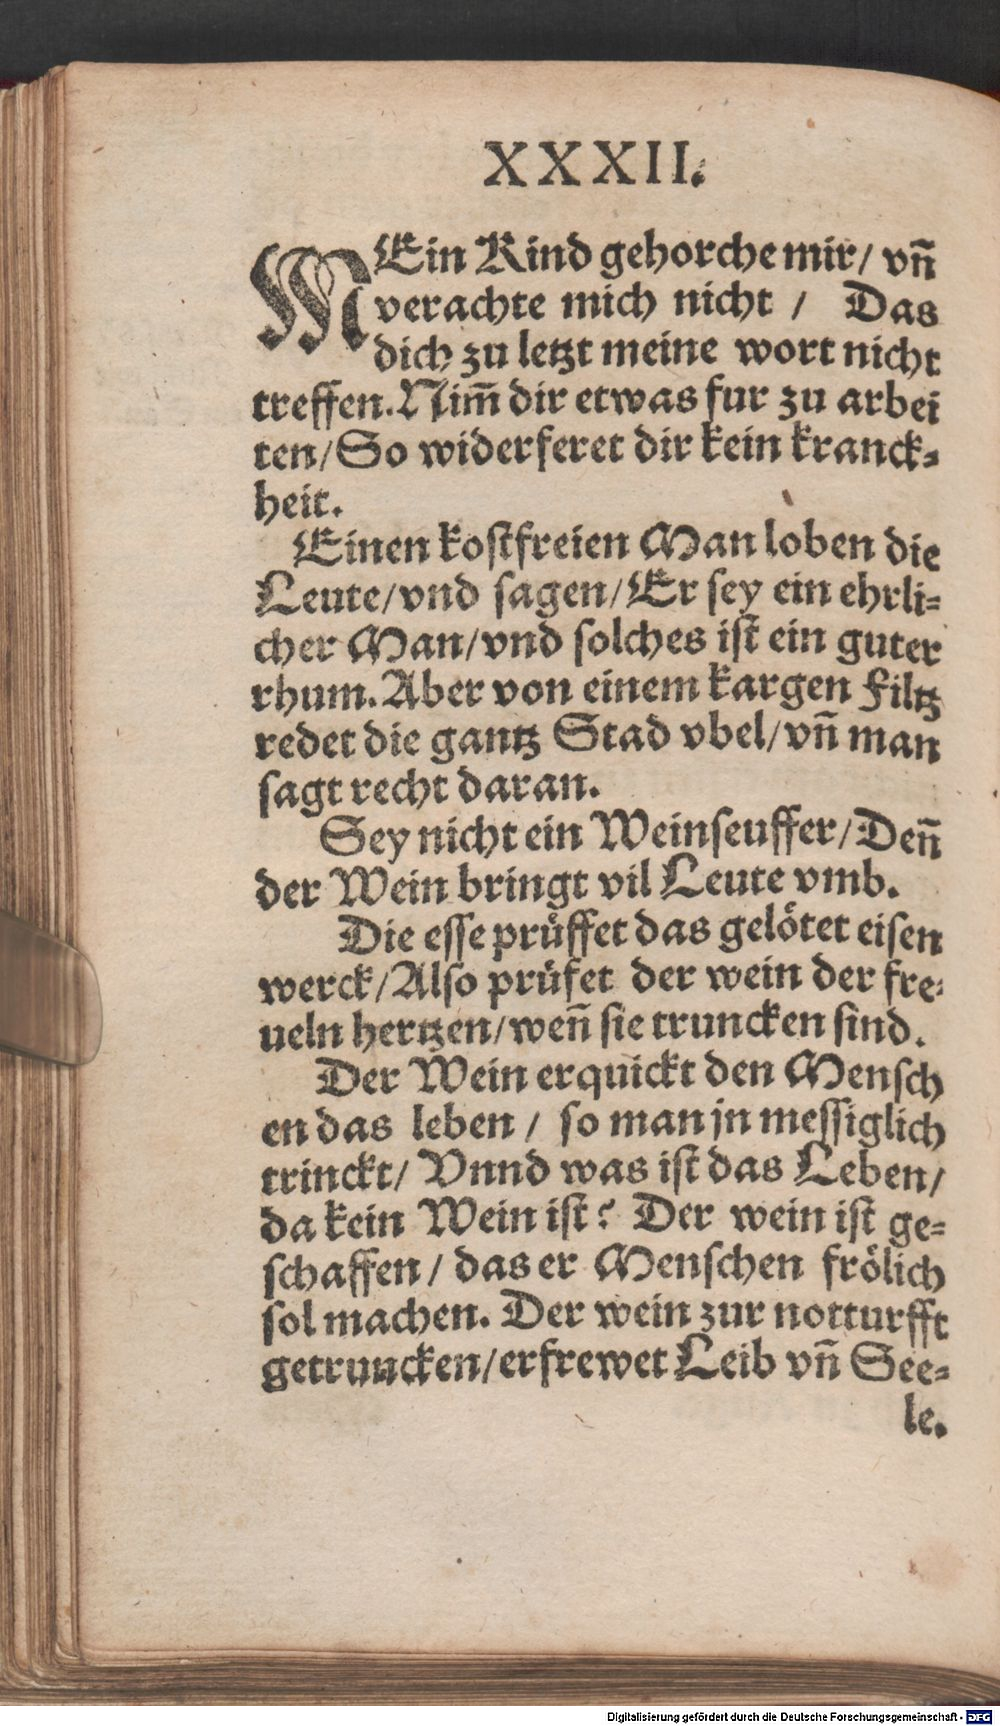 XXXII.
MEin Kind gehorche mir/ vn̄
verachte mich nicht / Das
dich zu letzt meine wort nicht
treffen. Nim̄ dir etwas fur zu arbei
ten/ So widerferet dir kein kranck⸗
heit.
Einen kostfreien Man loben die
Leute/ vnd sagen/ Er sey ein ehrli⸗
cher Man/ vnd solches ist ein guter
rhum. Aber von einem kargen Filtz
redet die gantz Stad vbel/ vn̄ man
sagt recht daran.
Sey nicht ein Weinseuffer/ Den̄
der Wein bringt vil Leute vmb.
Die esse prüffet das gelötet eisen
werck/ Also prüfet der wein der fre⸗
ueln hertzen/ wen̄ sie truncken sind.
Der Wein erquickt den Mensch
en das leben / so man jn messiglich
trinckt/ Vnnd was ist das Leben/
da kein Wein ist? Der wein ist ge⸗
schaffen / das er Menschen frölich
sol machen. Der wein zur notturfft
getruncken/ erfrewet Leib vn̄ See⸗
le.
Digitalisierung gefördert durch die Deutsche Forschungsgemeinschaft - DFG